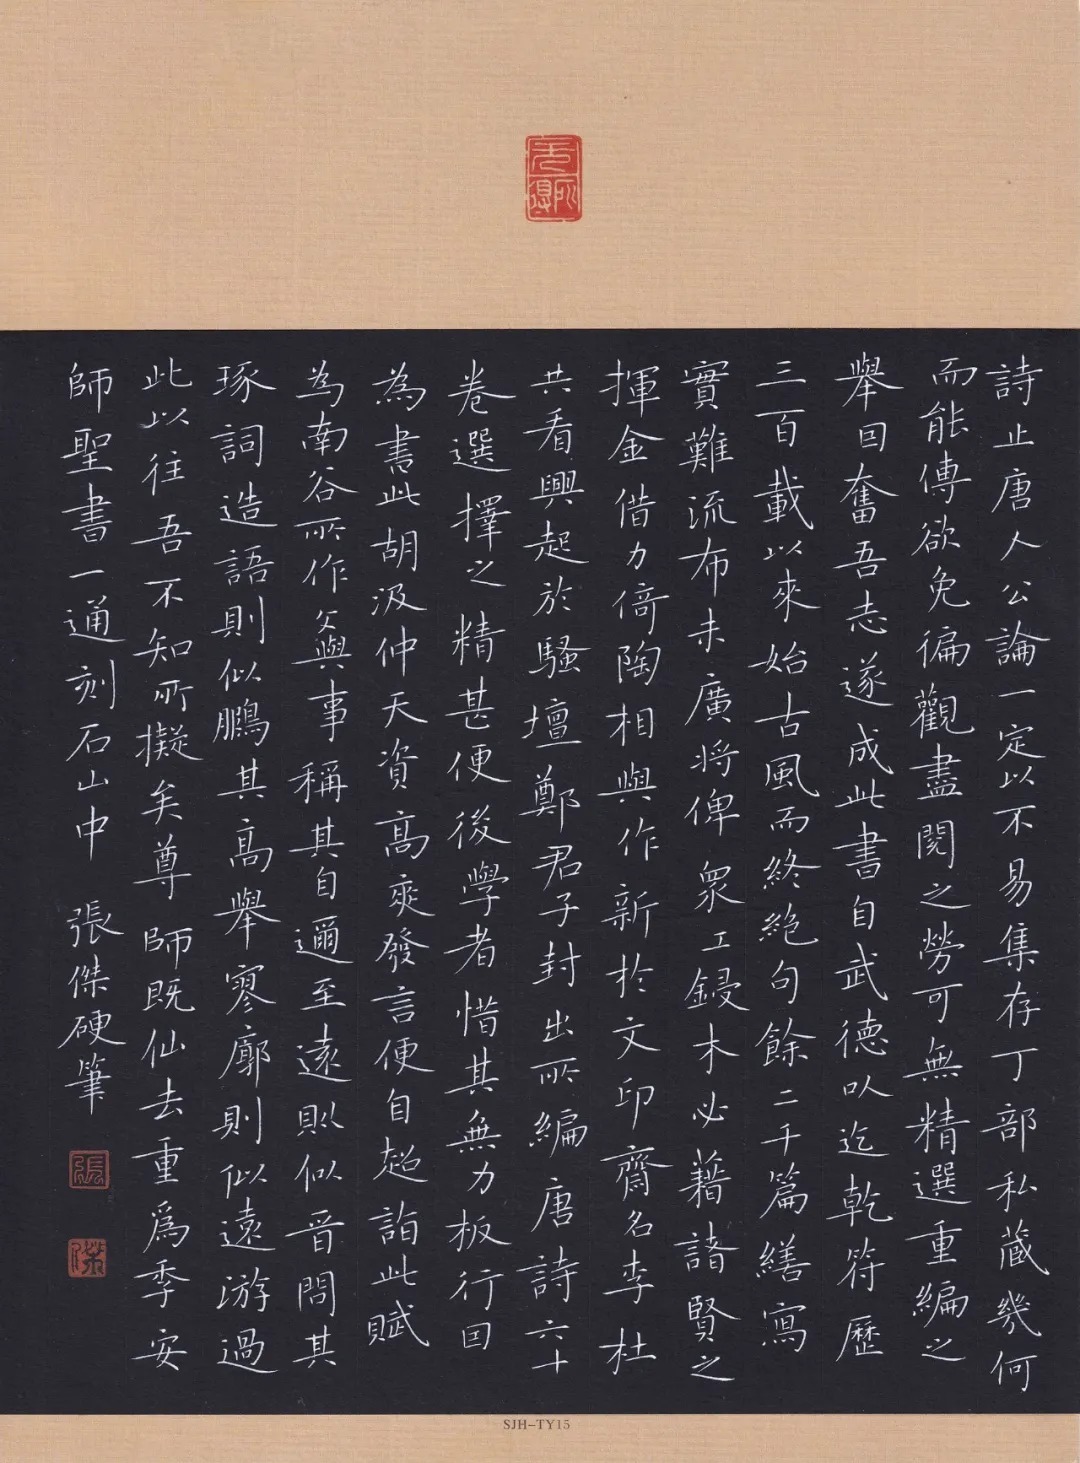 詩止唐人公論一定以不易集存丁部私藏幾何
而能傳欲免徧觀盡閱之勞可無精選重編之
舉因奮吾志遂成此書自武德以迄乾符歷
三百載以來始古風而終絶句餘二千篇繕寫
實難流布未廣將俾衆工鋟木必藉諸賢之
揮金借力倚陶相與作新於文印齋名李杜
共看興起於騷壇鄭君子封出所編唐詩六十
卷選擇之精甚便後學者惜其無力板行因
為書此胡汲仲天資高爽發言便自超詣此賦
為南谷所作文與事稱其自邇至遠則似晋問其
琢詞造語則似鵩其高舉寥廓則似遠游過
此以往吾不知所擬矣尊師既仙去重爲季安
師聖書一通刻石山中 張傑硬筆
張
傑
SJH-TY15